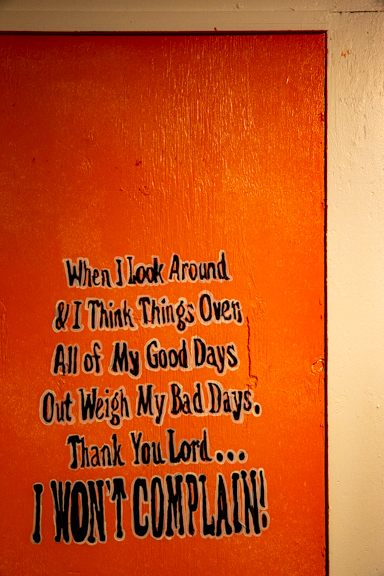 When I Look Around
& I Think Things Over,
All of My Good Days
Out Weigh My Bad Days.
Thank You Lord...
I WON'T COMPLAIN!